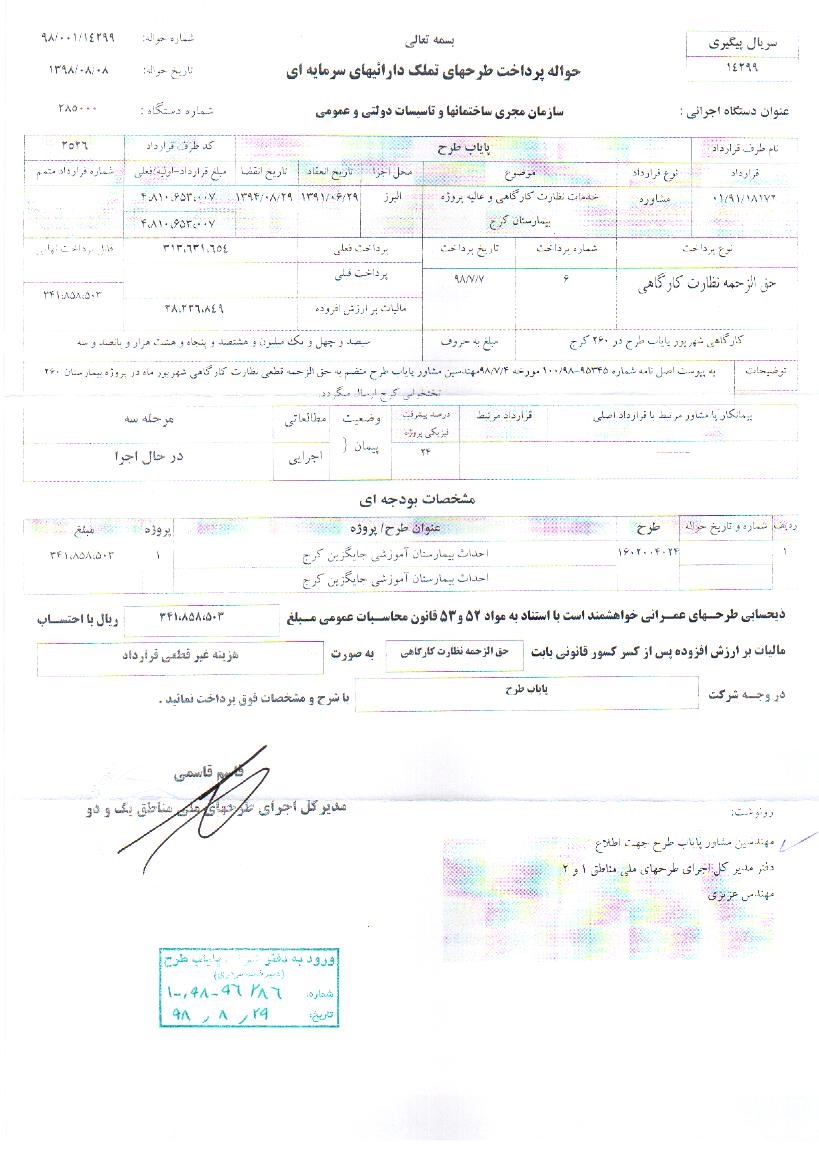 بسمه تعالی
شماره حواله: ۹۸/۰۰۱/۱۴۲۹۹
سریال پیگیری
۱۴۲۹۹
حواله پرداخت طرحهای تملک دارائیهای سرمایه ای
تاریخ حواله: ۱۳۹۸/۰۸/۰۸
عنوان دستگاه اجرائی : سازمان مجری ساختمانها و تاسیسات دولتی و عمومی
شماره دستگاه : ۲۸۵۰۰۰
نام طرف قرارداد پایاب طرح کد طرف قرارداد ۲۵۲۶
قرارداد نوع قرارداد موضوع محل اجرا تاریخ انعقاد تاریخ انقضا مبلغ قرارداد-اولیه/فعلی شماره قرارداد متمم
۰۱/۹۱/۱۸۱۷۲ مشاوره خدمات نظارت کارگاهی و عالیه پروژه البرز ۱۳۹۱/۰۶/۲۹ ۱۳۹۴/۰۸/۲۹ ۴،۸۱۰،۶۵۳،۰۰۷
بیمارستان کرج ۴،۸۱۰،۶۵۳،۰۰۷
نوع پرداخت شماره پرداخت تاریخ پرداخت پرداخت فعلی ۳۱۳،۶۳۱،۶۵۴ قابل پرداخت نهایی
حق الزحمه نظارت کارگاهی ۶ ۹۸/۷/۷ پرداخت قبلی
۳۴۱،۸۵۸،۵۰۳
مالیات بر ارزش افزوده ۲۸،۲۲۶،۸۴۹
کارگاهی شهریور پایاب طرح در ۲۶۰ کرج مبلغ به حروف سیصد و چهل و یک میلیون و هشتصد و پنجاه و هشت هزار و پانصد و سه
توضیحات به پیوست اصل نامه شماره ۹۵۳۴۵-۱۰۰/۹۸ مورخه ۹۸/۷/۴مهندسین مشاور پایاب طرح منضم به حق الزحمه قطعی نظارت کارگاهی شهریور ماه در پروژه بیمارستان ۲۶۰
تختخوابی کرج ارسال میگردد.
پیمانکار یا مشاور مرتبط با قرارداد اصلی قرارداد مرتبط درصد پیشرفت فیزیکی پروژه وضعیت پیمان { مطالعاتی مرحله سه
۲۴ اجرایی در حال اجرا
مشخصات بودجه ای
ردیف شماره و تاریخ حواله طرح عنوان طرح/ پروژه پروژه مبلغ
۱ ۱۶۰۲۰۰۴۰۲۴ احداث بیمارستان آموزشی جایگزین کرج ۱ ۳۴۱،۸۵۸،۵۰۳
احداث بیمارستان آموزشی جایگزین کرج
ذیحسابی طرحهای عمرانی خواهشمند است با استناد به مواد ۵۲ و۵۳ قانون محاسبات عمومی مبلغ ۳۴۱،۸۵۸،۵۰۳ ریال با احتساب
مالیات بر ارزش افزوده پس از کسر کسور قانونی بابت حق الزحمه نظارت کارگاهی به صورت هزینه غیر قطعی قرارداد
در وجه شرکت پایاب طرح با شرح و مشخصات فوق پرداخت نمائید .
قاسم قاسمی
مدیرکل اجرای طرحهای ملی مناطق یک و دو
رونوشت:
مهندسین مشاور پایاب طرح جهت اطلاع
دفتر مدیر کل اجرای طرحهای ملی مناطق ۱ و ۲
مهندس عزیزی
ورود به دفتر پایاب طرح
شماره: ۱۰۰،۹۸-۹۶۲۸۶
تاریخ: ۹۸ / ۸ / ۲۹